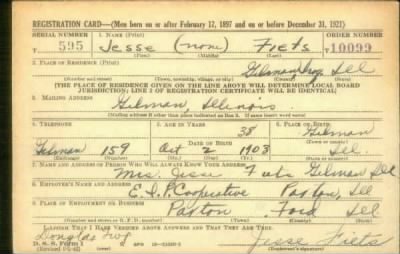 REGISTRATION CARD—(Men born on or after February 17, 1897 and on or before December 31, 1921)
SERIAL NUMBER 1. NAME (Print) ORDER NUMBER
T 595 Jesse (none) Fiets T10099
(First) (Middle) (Last)
2. PLACE OF RESIDENCE (Print)
Gilman Ill
(Number and street) (Town, township, village, or city) (County) (State)
[THE PLACE OF RESIDENCE GIVEN ON THE LINE ABOVE WILL DETERMINE LOCAL BOARD
JURISDICTION; LINE 2 OF REGISTRATION CERTIFICATE WILL BE IDENTICAL]
3. MAILING ADDRESS
Gilman, Illinois
[Mailing address if other than place indicated on line 2. If same insert word same]
4. TELEPHONE 5. AGE IN YEARS 6. PLACE OF BIRTH
38 Gilman
DATE OF BIRTH
Gilman 159 Oct 2 1903 Ill.
(Exchange) (Number) (Mo.) (Day) (Yr.) (State or country)
7. NAME AND ADDRESS OF PERSON WHO WILL ALWAYS KNOW YOUR ADDRESS
Mrs. Jesse Fiets Gilman Ill
8. EMPLOYER'S NAME AND ADDRESS
E. I. P. Cooperative Paxton, Ill
9. PLACE OF EMPLOYMENT OR BUSINESS
Paxton Ford Ill
(Number and street or R. F. D. number) (Town) (County) (State)
I AFFIRM THAT I HAVE VERIFIED ABOVE ANSWERS AND THAT THEY ARE TRUE.
Douglas Twp
D. S. S. Form 1
Jesse Fiets
(Registrant's signature)